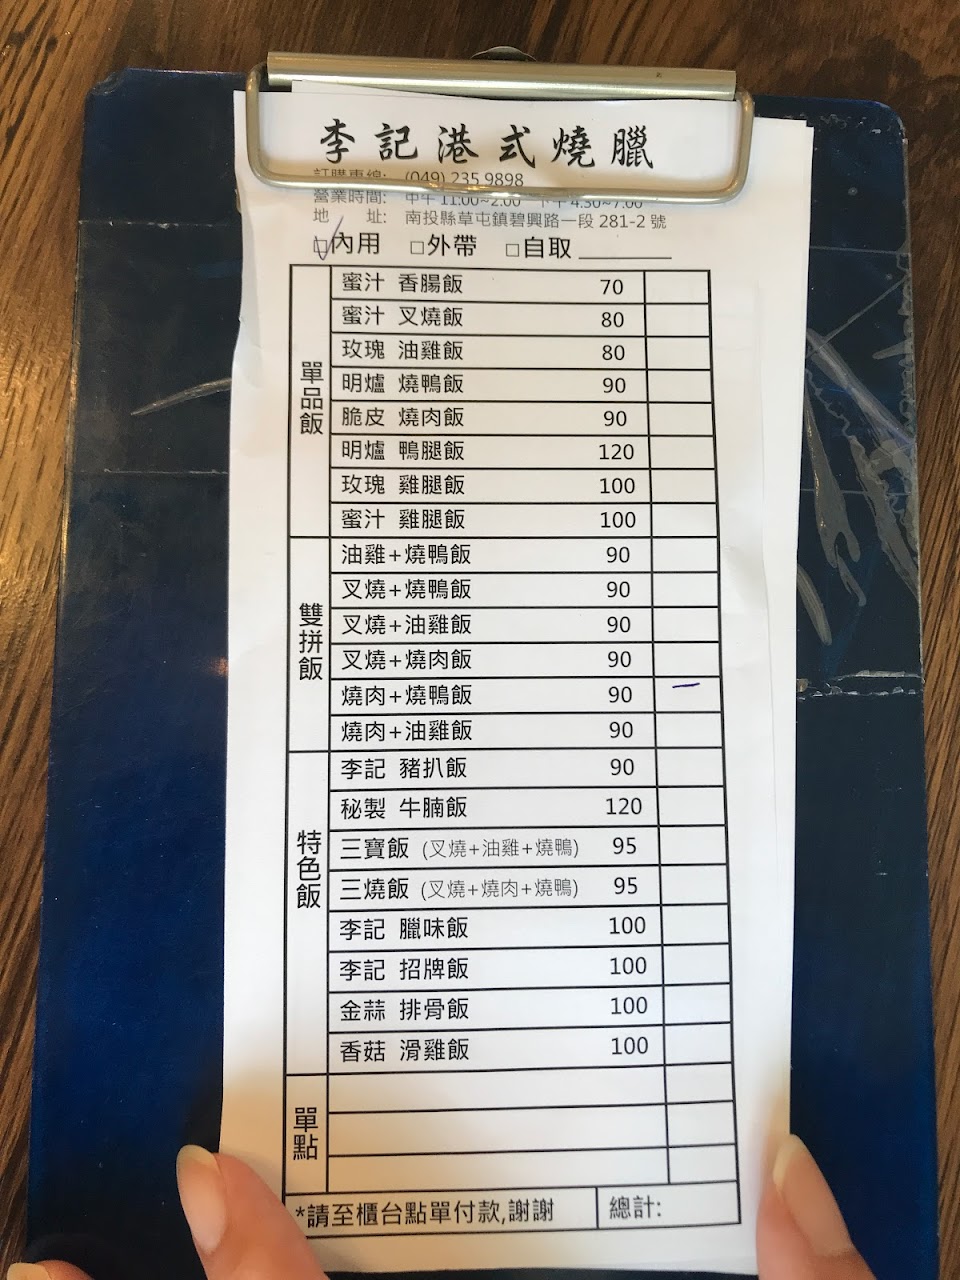 李記港式燒臘
訂購專線: (049) 235 9898
營業時間: 中午 11:00~2:00 下午 4:30~7:00
地 址: 南投縣草屯鎮碧興路一段 281-2 號
□內用 □外帶 □自取
單品飯
蜜汁 香腸飯 70
蜜汁 叉燒飯 80
玫瑰 油雞飯 80
明爐 燒鴨飯 90
脆皮 燒肉飯 90
明爐 鴨腿飯 120
玫瑰 雞腿飯 100
蜜汁 雞腿飯 100
雙拼飯
油雞+燒鴨飯 90
叉燒+燒鴨飯 90
叉燒+油雞飯 90
叉燒+燒肉飯 90
燒肉+燒鴨飯 90 一
燒肉+油雞飯 90
特色飯
李記 豬扒飯 90
秘製 牛腩飯 120
三寶飯 (叉燒+油雞+燒鴨) 95
三燒飯 (叉燒+燒肉+燒鴨) 95
李記 臘味飯 100
李記 招牌飯 100
金蒜 排骨飯 100
香菇 滑雞飯 100
單點
*請至櫃台點單付款,謝謝 總計: